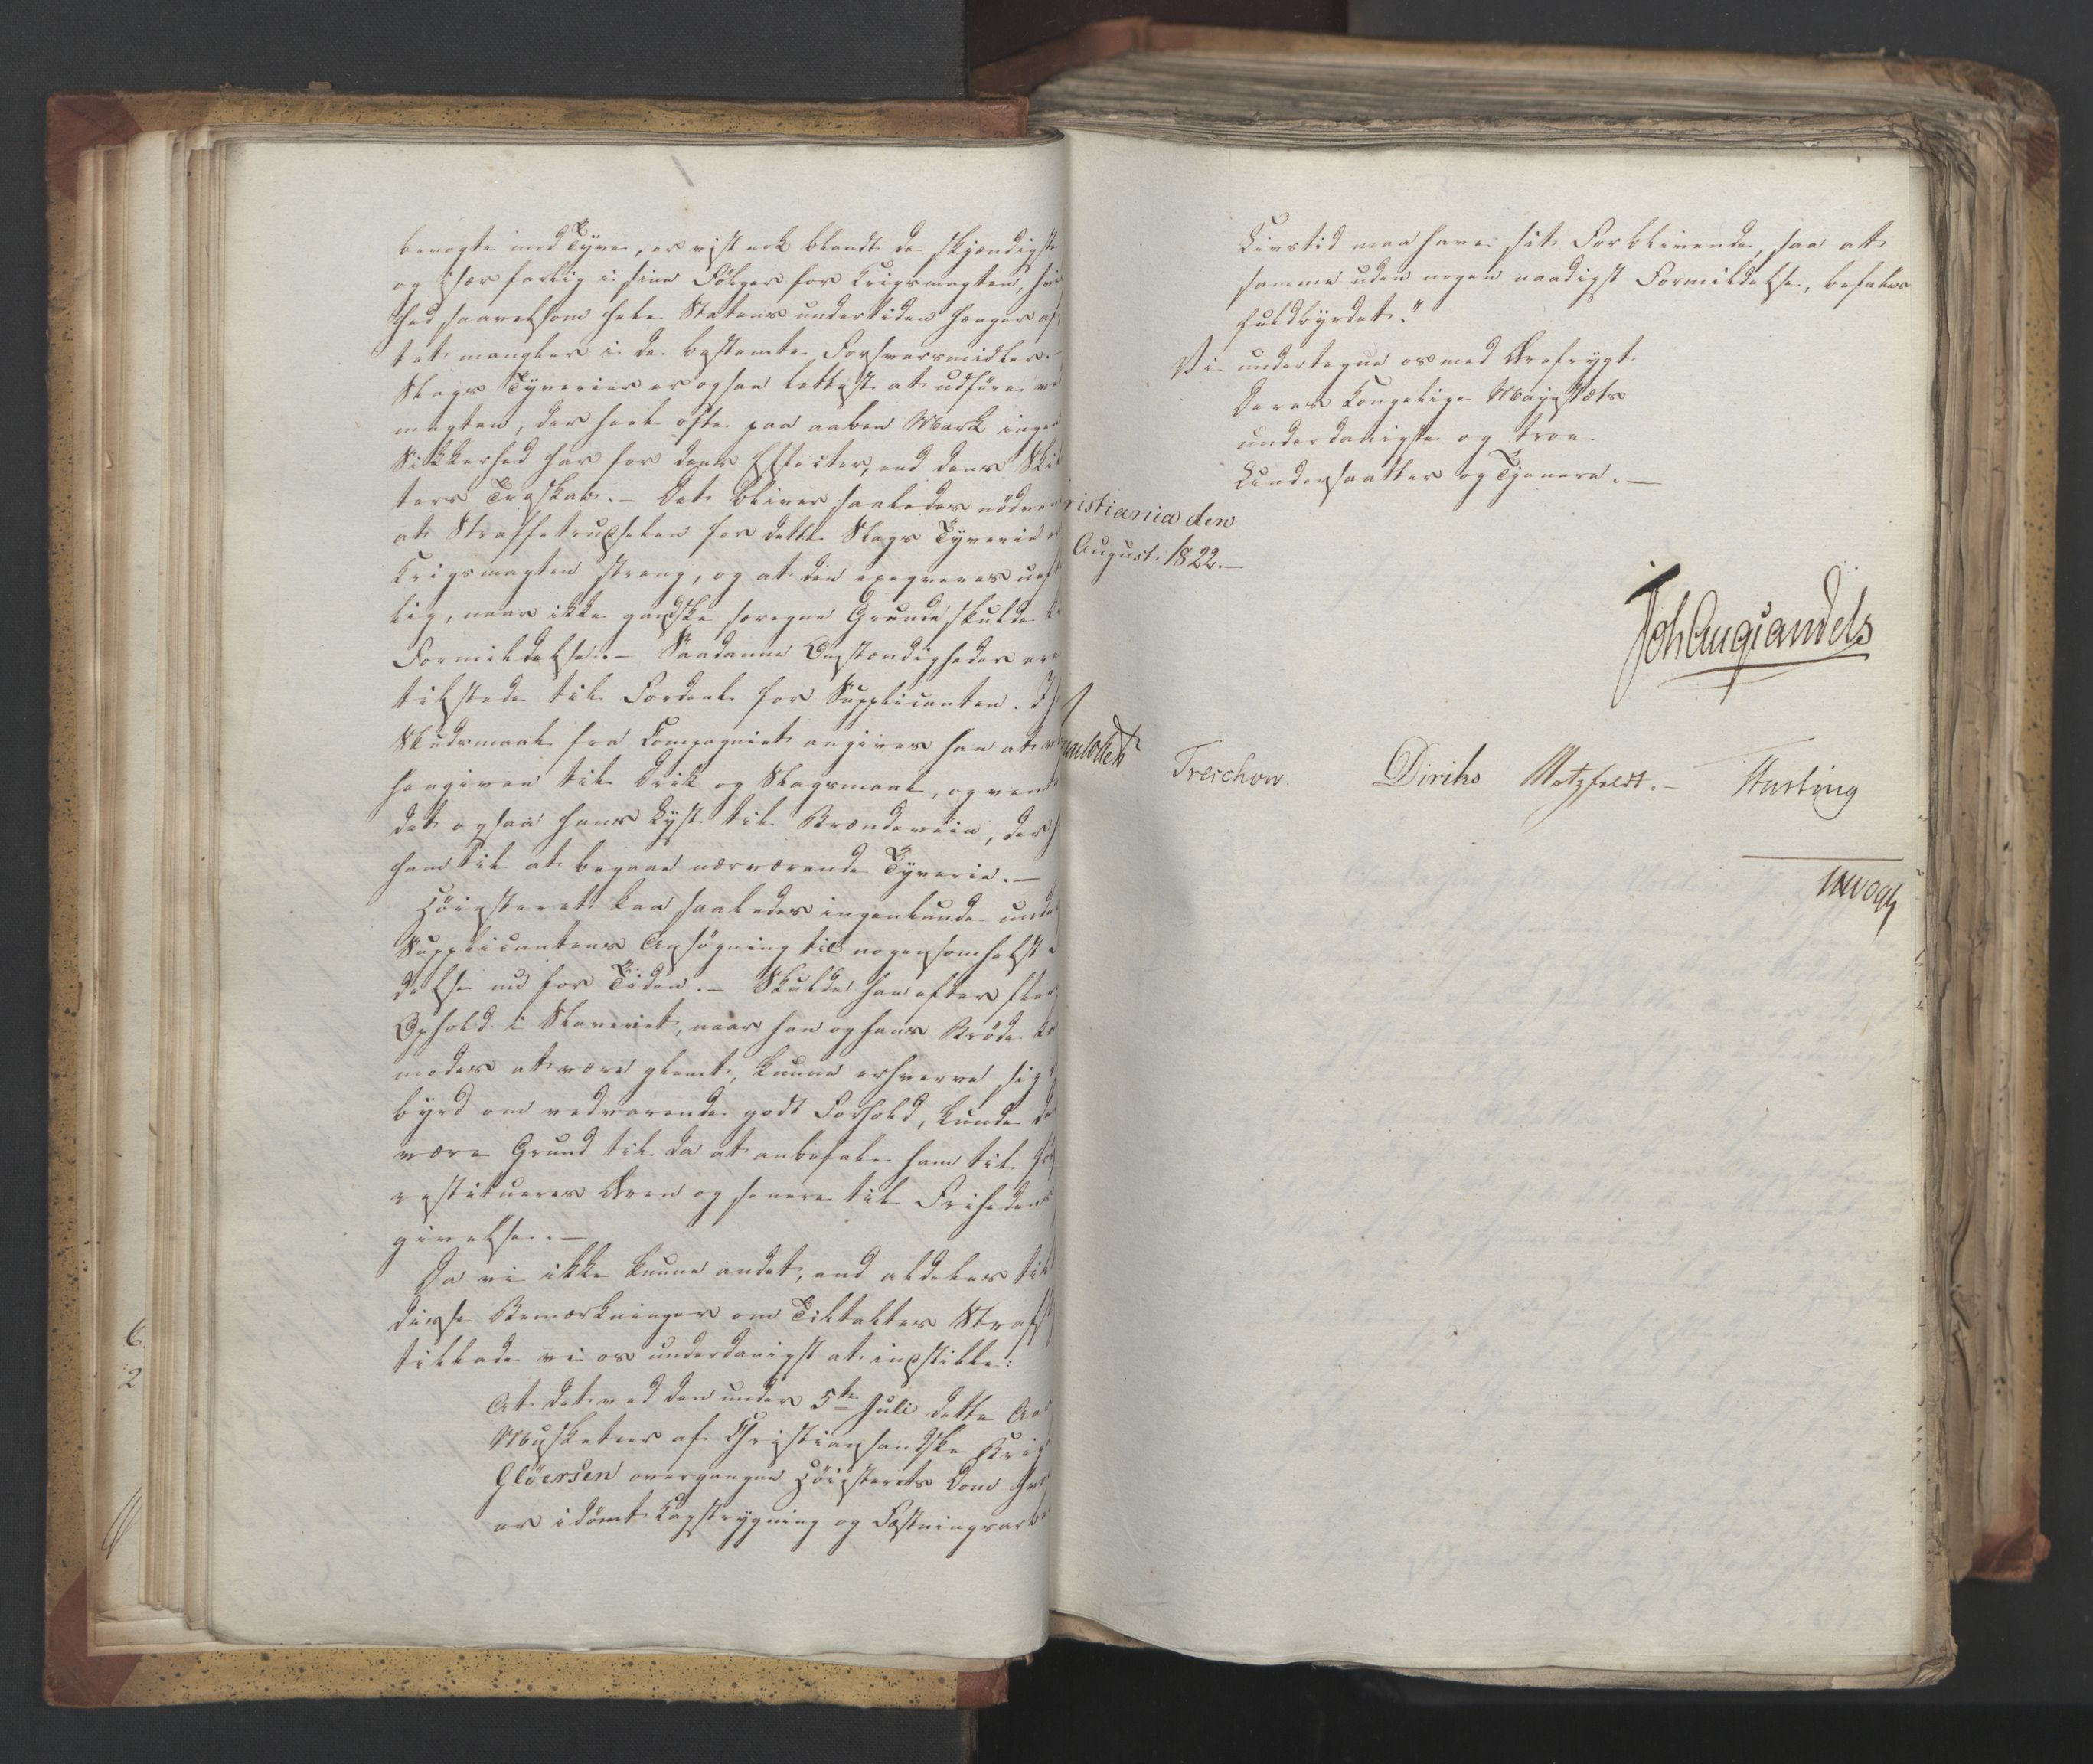 bevogte mod Tyve, er vist nok blandt de skjændigste
og især farlig i sine Fölger for Krigsmagten, hvi
hed saavelsom hele Statens undertiden hænger af,
tet mangler i de bestemte Forsvarsmidler.-
Slags Tyverier er ogsaa lettest at udföre ve
magten, der heel ofte paa aaben Mark ingen
Sikkerhed har for dens Effecter, end dens Ski
ters Troskab. - Det bliver saaledes nödven
at Straffetrudselen for dette Slags Tyverie
Krigsmagten streng, og at den exeqveres ueft
lig, naar ikke gandske særegne Grunde skulde
Formildelse. - Saadanne Omstændigheder ere
tilstede til Fordeel for Supplicanten. I
Skudsmaal fra Compagniet angives han at v
hengiven til Drik og Slagsmaal, og
det ogsaa hans Lyst til Brændeviin, der
ham til at begaae nærværende Tyverie. -
Höiesteret kan saaledes ingenlunde unde
Supplicantens Ansögning til nogensomhelst
delse nu for Tiden. - Skulde han efter fleer
Ophold i Slaveriet, naar han og hans Bröde
modes at være glemt, kunne erhverve sig
byrd om vedvarende godt Forhold, kunde
være Grund til da at anbefale ham til
restitueres Æren og senere til Frihedens
givelse. -
Da vi ikke kunne andet, end aldeles til
disse Bemærkninger om Tiltaltes Straf
tillade vi os underdanigst at indstille:
At det ved den under 5te Juli dette Aar
Musketeer af Christiansandske Brig
Glöersen overgangne Höiesterets Dom
er idömt Kagstrygning og Fæstningsarbe
Livstid maa have sit Forblivende, saa at
samme uden nogen naadigst Formildelse, befales
fuldbyrdet."
Vi undertegne os med Ærefrygt
Deres Kongelige Majestæts
underdanigste og troe
Undersaatter og Tjenere. -
ristiania den
August 1822. -
Joh Aug Sandels
Treschow. Diriks Motzfeldt. - Hasting
Vogt